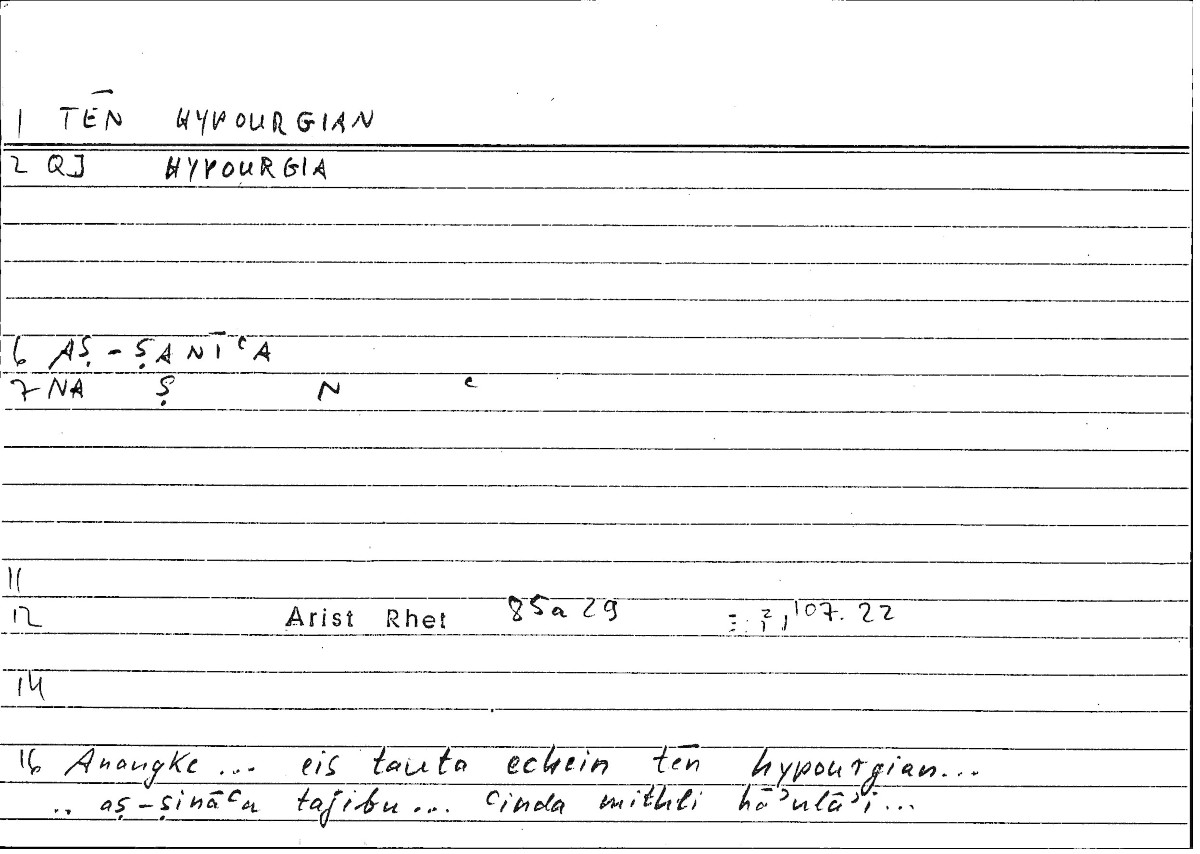 1 TĒN HYPOURGIAN
2 QJ HYPOURGIA
6 AṢ-ṢANĪʿA
7 NA Ṣ N ʿ
11
12 Arist Rhet 85a29 107.22
14
16 Anangke ... eis tauta echein tēn hypourgian...
.. aṣ-ṣināʿa tajibu... ʿinda mithli hāʾulāʾi...